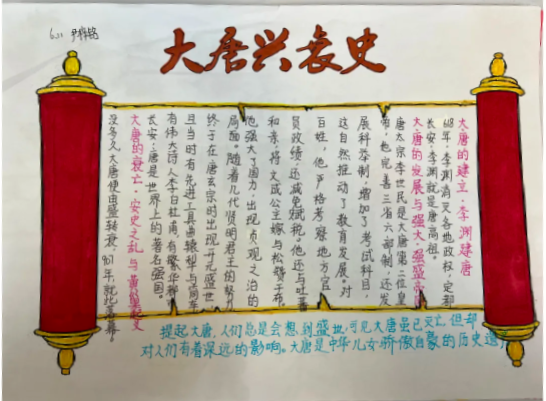 大唐兴衰史
大唐的建立·李渊建唐
618年,李渊消灭各地政权,定都
长安,李渊就是唐高祖。
大唐的发展与强大·强盛
唐太宗李世民是大唐第二位皇
帝,他完善三省六部制,还发
展科举制,增加了考试科目,
这自然推动了教育发展。对
百姓,他严格考察地方官
员政绩,还减免赋税。他还与吐蕃
和亲,将文成公主嫁与松赞干布。
他强大了国力,出现贞观之治的
局面。随着几代贤明君主的努力
终于在唐玄宗时出现开元盛世
且当时有先进工具曲辕犁与筒车
有伟大诗人李白杜甫,有繁华
长安,唐是世界上的著名强国。
大唐的衰亡·安史之乱与黄巢起义
没多久大唐便由盛转衰,907年,就此
提起大唐,人们总是会想到盛世,可见大唐虽已灭亡,但却
对人们有着深远的影响。大唐是中华儿女骄傲自豪的历史